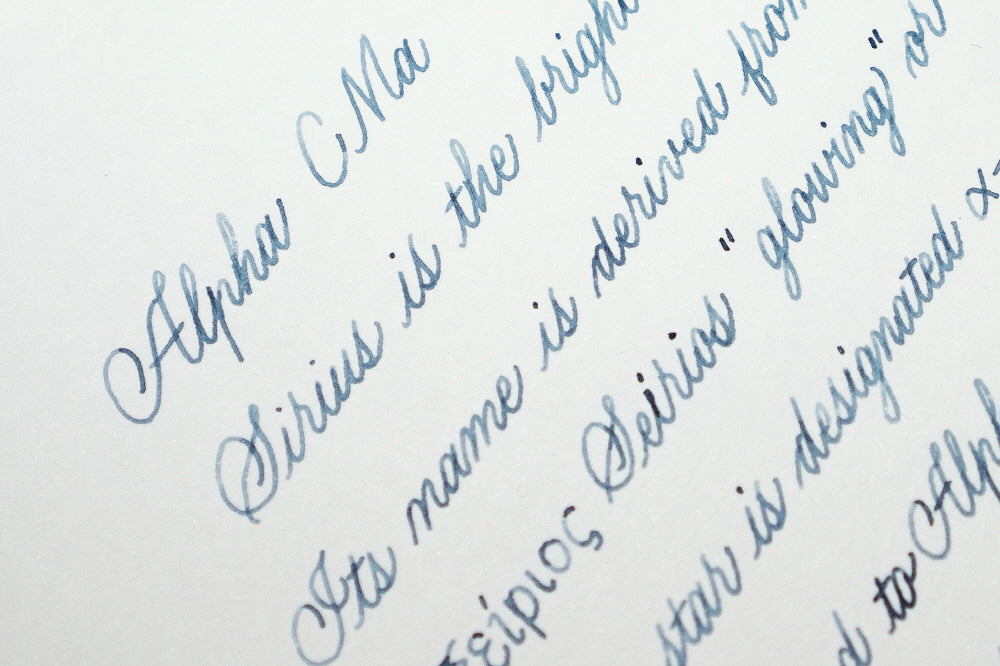 Alpha CMa
Sirius is the brigh
Its name is derived from
σείριος Seirios "glowing" or
star is designated α
d to Alph